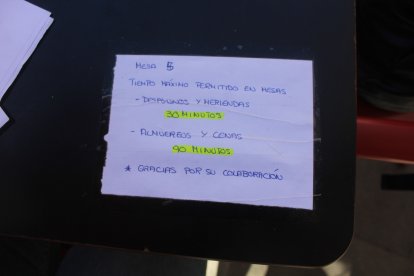 MESA 5
TIEMPO MÁXIMO PERMITIDO EN MESAS
- DESAYUNOS Y MERIENDAS
30 MINUTOS
- ALMUERZOS Y CENAS
90 MINUTOS
* GRACIAS POR SU COLABORACIÓN